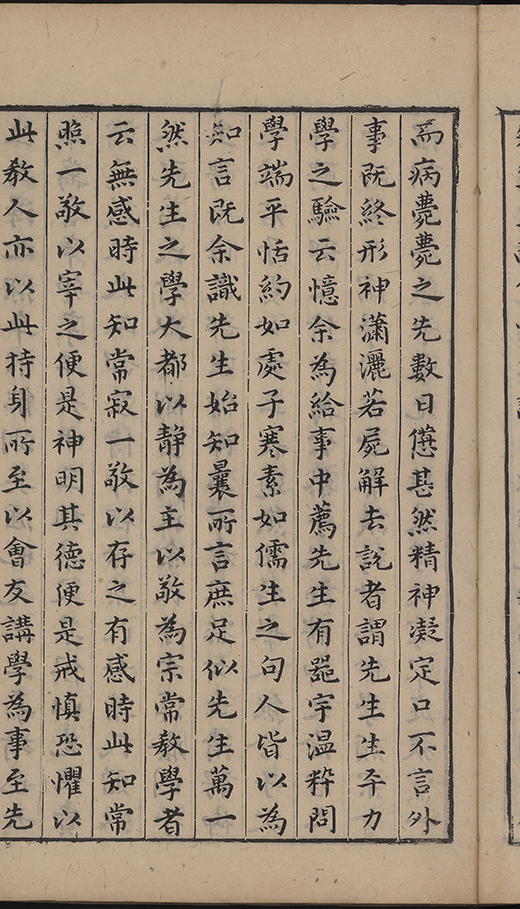 而病薨薨之先數日憊甚然精神凝定口不言外
事既終形神瀟灑若屍解去說者謂先生生平力
學之驗云憶余為給事中薦先生有器宇溫粹問
學端平恬約如處子寒素如儒生之句人皆以為
知言既余識先生始知曩所言庶足似先生萬一
然先生之學大都以靜為主以敬為宗常教學者
云無感時此知常寂一敬以存之有感時此知常
照一敬以宰之便是神明其德便是戒慎恐懼以
此教人亦以此持身所至以會友講學為事至先